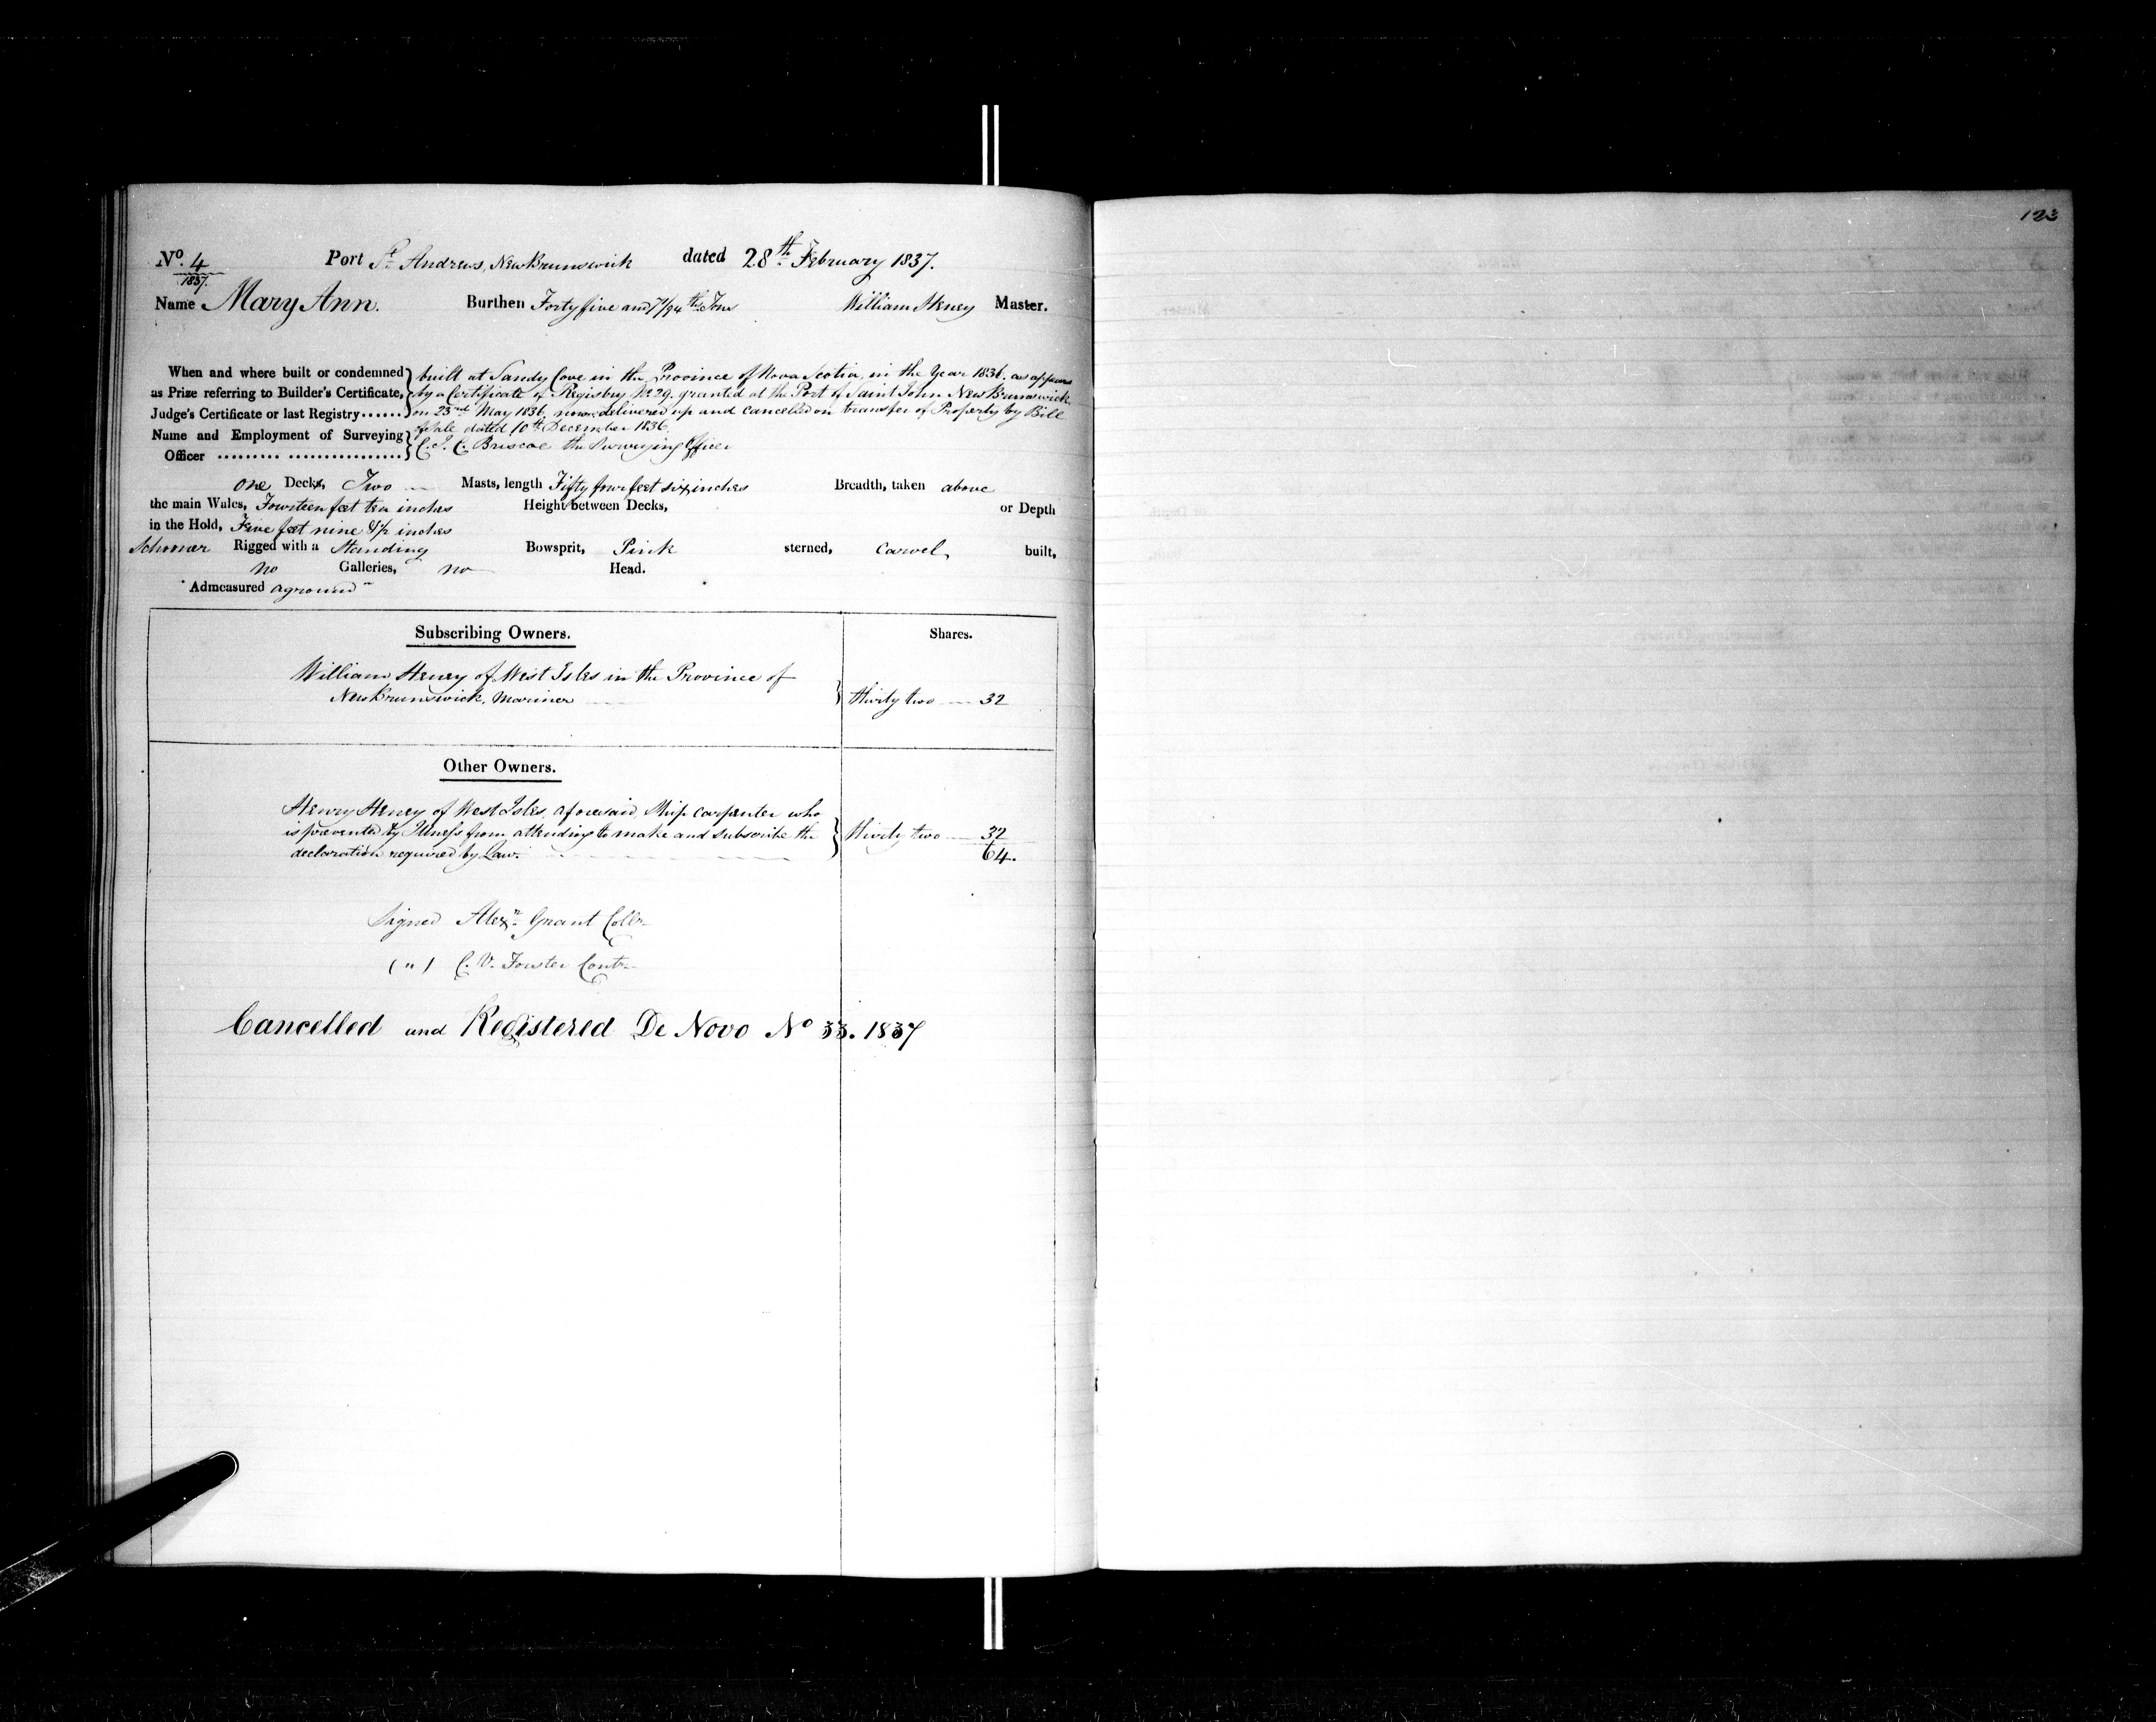 123
No. 4 Port St. Andrews, New Brunswick dated 28th February 1837.
1837.
Name Mary Ann. Burthen Forty five and 71/94ths Tons William Heney Master.
When and where built or condemned as Prize referring to Builder's Certificate, Judge's Certificate or last Registry......
built at Sandy Cove in the Province of Nova Scotia, in the Year 1836. as appears
by a Certificate of Registry No 29. granted at the Port of Saint John New Brunswick,
on 23rd May 1836, now delivered up and cancelled on transfer of Property by Bill
of Sale dated 10th December 1836.
Name and Employment of Surveying Officer ......... ................
C. J. C. Briscoe the Surveying Officer
one Decks, Two Masts, length Fifty four feet six inches Breadth, taken above
the main Wales, Fourteen feet ten inches Height between Decks, or Depth
in the Hold, Five feet nine & 1/2 inches
Schooner Rigged with a Standing Bowsprit, Pink sterned, Carvel built,
no Galleries, no Head.
Admeasured aground
Subscribing Owners. Shares.
William Heney of West Isles in the Province of
New Brunswick, Mariner thirty two 32
Other Owners.
Henry Heney of West Isles, aforesaid, Ship carpenter who
is prevented by Illness from attending to make and subscribe the thirty two 32
declaration required by Law. 64.
Signed Alexr. Grant Collr
( " ) C. V. Forster Contr
Cancelled and Registered De Novo No 33. 1837